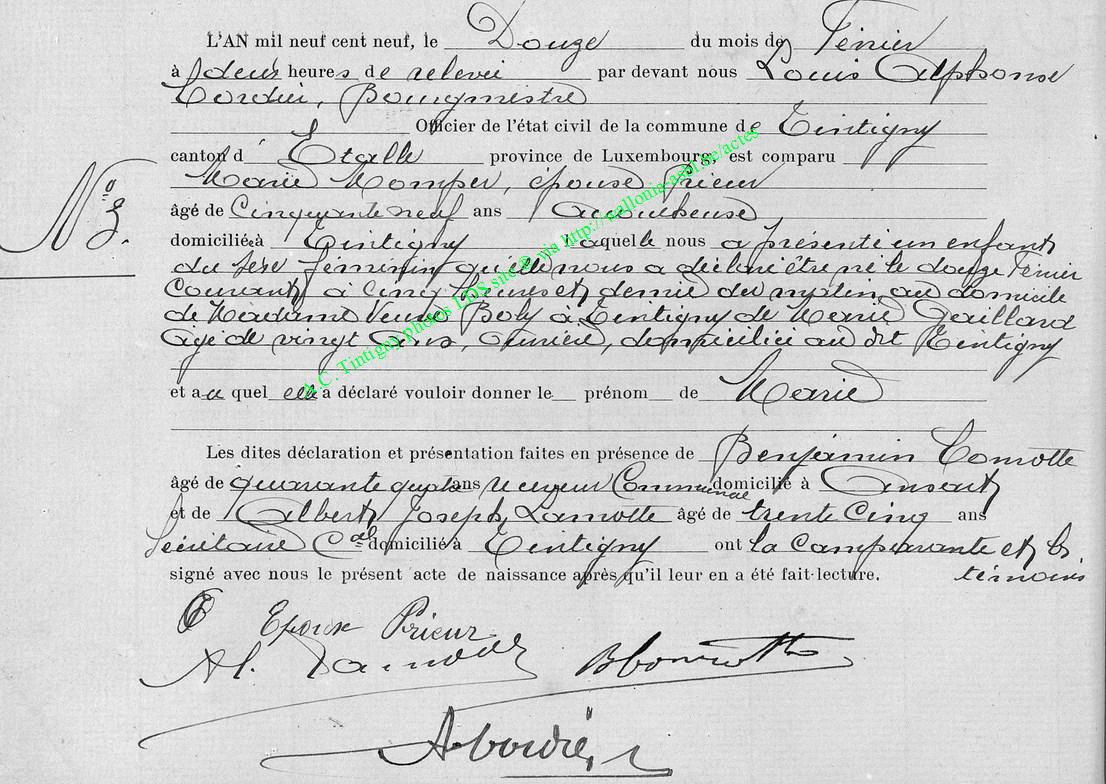 L'AN mil neuf cent neuf, le Douze du mois de Février
à deux heures de relevée par devant nous Louis Alphonse
Cordier, Bourgmestre
Officier de l'état civil de la commune de Tintigny
canton d' Etalle province de Luxembourg, est comparu
Marie Momper, épouse Prieur
âgé de Cinquante neuf ans Accoucheuse,
N° 3.
domiciliée à Tintigny laquelle nous a présenté un enfant
du sexe féminin qu'elle nous a déclaré être né le douze Février
courant, à cinq heures et demie du matin, au domicile
de Madame Veuve Body à Tintigny de Marie Gaillard
âgée de vingt ans, Ouvrière, domiciliée au dit Tintigny
et au quel elle a déclaré vouloir donner le prénom de Marie
Les dites déclaration et présentation faites en présence de Benjamin Comotte
âgé de quarante quatre ans receveur Communal domicilié à Ansart
et de Albert Joseph Lamotte âgé de trente Cinq ans
Secrétaire Cal domicilié à Tintigny ont la Comparante et les
témoins
signé avec nous le présent acte de naissance après qu'il leur en a été fait lecture.
Epouse Prieur
Al. Lamotte BComotte
ACordier
A.C. Tintigny photos LDS site® via http://wallonia-asbl.be/actes